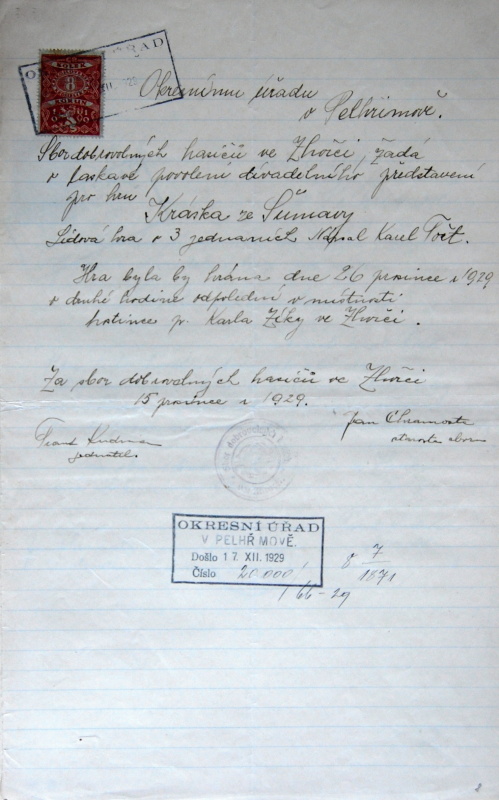 OKRESNÍ ÚŘAD
KOLEK
8
XII. 1929
Okresnímu úřadu
v Pelhřimově.
Sbor dobrovolných hasičů ve Zhoři, žádá
o laskavé povolení divadelního představení
pro hru
Kráska ze Šumavy
Lidová hra o 3 jednáních Napsal Karel Fořt.
Hra byla by hrána dne 26 prosince 1929
o druhé hodině odpolední v místnosti
hostince p. Karla Zíky ve Zhoři.
Za sbor dobrovolných hasičů ve Zhoři
15 prosince 1929.
Jan Chramosta
starosta sboru
jednatel
OKRESNÍ ÚŘAD
V PELHŘIMOVĚ.
Došlo 17. XII. 1929
Číslo 20.000
8 7
1871
66-29
2